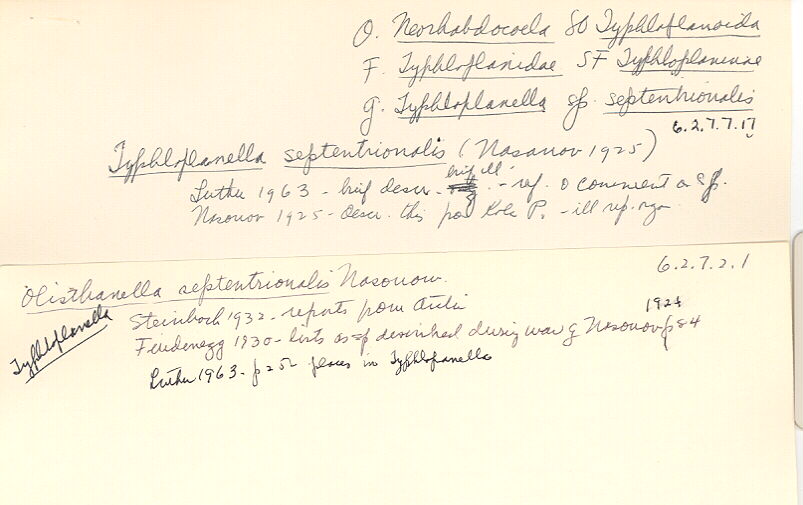 O. Neorhabdocoela SO Typhloplanoida
F. Typhloplanidae SF Typhloplaninae
g. Typhloplanella sp. septentrionalis
6.2.7.7.17
Typhloplanella septentrionalis (Nasonov 1925)
brief ill
Luther 1963 - brief descr. - ref. comment on sp.
Nasonov 1925 - descr. this from Kola P. - ill rep. orga
6.2.7.2.1
Olisthanella septentrionalis Nasonow
Steinböck 1932 - reports from Arctic
1924
Feudenegg 1930 - lists as sp described during war by Nasonov p 84
Typhloplanella
Luther 1963 - p 252 places in Typhloplanella